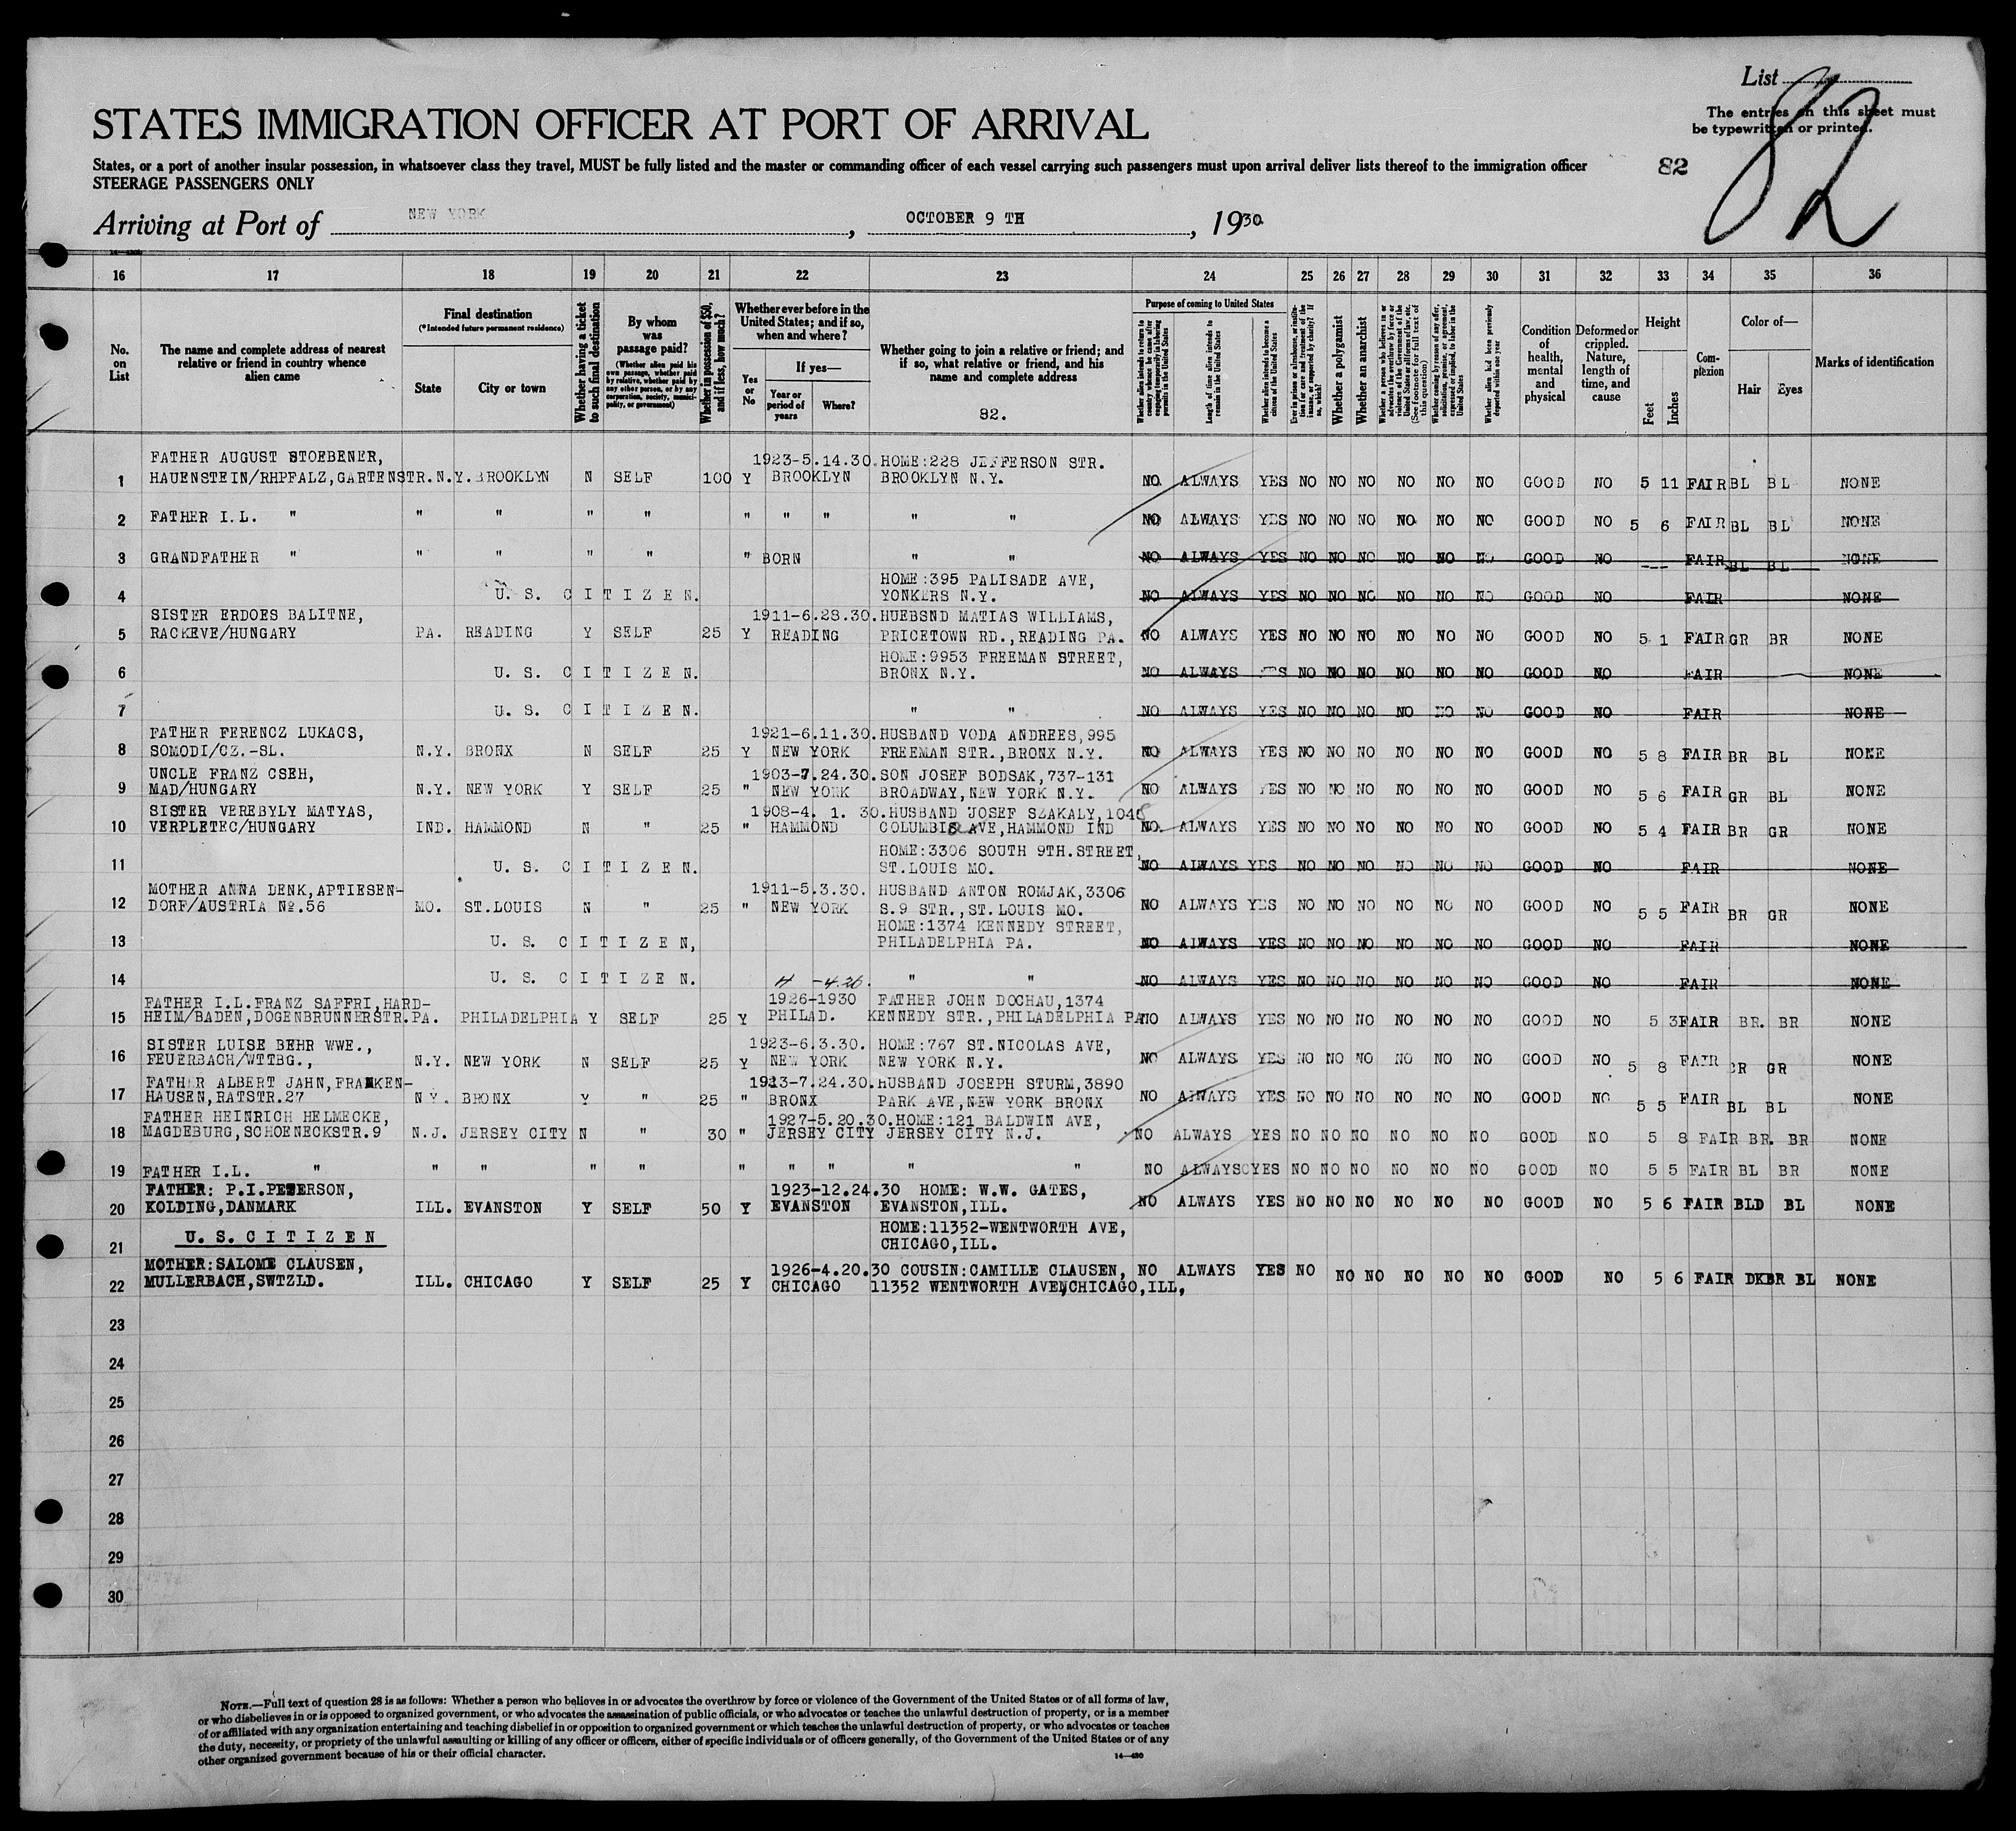 List
The entries on this sheet must
be typewritten or printed.
82
82
STATES IMMIGRATION OFFICER AT PORT OF ARRIVAL
States, or a port of another insular possession, in whatsoever class they travel, MUST be fully listed and the master or commanding officer of each vessel carrying such passengers must upon arrival deliver lists thereof to the immigration officer
STEERAGE PASSENGERS ONLY
Arriving at Port of NEW YORK, OCTOBER 9 TH, 1930
16 17 18 19 20 21 22 23 24 25 26 27 28 29 30 31 32 33 34 35 36
No. on List
The name and complete address of nearest relative or friend in country whence alien came
Final destination
(*Intended future permanent residence)
State
City or town
Whether having a ticket to such final destination
By whom was passage paid?
(Whether alien paid his own passage, whether paid by relative, whether paid by any other person, or by any corporation, society, municipality, or government)
Whether in possession of $50, and if less, how much?
Whether ever before in the United States; and if so, when and where?
Yes or No
If yes—
Year or period of years
Where?
Whether going to join a relative or friend; and if so, what relative or friend, and his name and complete address
82.
Purpose of coming to United States
Whether alien intends to return to country whence he came after engaging temporarily in laboring pursuits in the United States
Length of time alien intends to remain in the United States
Whether alien intends to become a citizen of the United States
Ever in prison or almshouse, or institution for care and treatment of the insane, or supported by charity? If so, which?
Whether a polygamist
Whether an anarchist
Whether a person who believes in or advocates the overthrow by force or violence of the Government of the United States or all forms of law, etc. (See footnote for full text of this question)
Whether coming by reason of any offer, solicitation, promise, or agreement, expressed or implied, to labor in the United States
Whether alien had been previously deported within one year
Condition of health, mental and physical
Deformed or crippled. Nature, length of time, and cause
Height
Feet
Inches
Complexion
Color of—
Hair
Eyes
Marks of identification
FATHER AUGUST STOEBENER, 1923-5.14.30. HOME:228 JEFFERSON STR.
1 HAUENSTEIN/RHPFALZ,GARTENSTR. N.Y. BROOKLYN N SELF 100 Y BROOKLYN BROOKLYN N.Y. NO ALWAYS YES NO NO NO NO NO NO GOOD NO 5 11 FAIR BL BL NONE
2 FATHER I.L. " " " " " " " " " " NO ALWAYS YES NO NO NO NO NO NO GOOD NO 5 6 FAIR BL BL NONE
3 GRANDFATHER " " " " " " BORN " " NO ALWAYS YES NO NO NO NO NO NO GOOD NO --- FAIR BL BL NONE
HOME:395 PALISADE AVE,
4 U. S. C I T I Z E N. YONKERS N.Y. NO ALWAYS YES NO NO NO NO NO NO GOOD NO FAIR NONE
SISTER ERDOES BALITNE, 1911-6.28.30. HUEBSND MATIAS WILLIAMS,
5 RACKEVE/HUNGARY PA. READING Y SELF 25 Y READING PRICETOWN RD.,READING PA. NO ALWAYS YES NO NO NO NO NO NO GOOD NO 5 1 FAIR GR BR NONE
HOME:9953 FREEMAN STREET,
6 U. S. C I T I Z E N. BRONX N.Y. NO ALWAYS YES NO NO NO NO NO NO GOOD NO FAIR NONE
7 U. S. C I T I Z E N. " " NO ALWAYS YES NO NO NO NO NO NO GOOD NO FAIR NONE
FATHER FERENCZ LUKACS, 1921-6.11.30. HUSBAND VODA ANDREES,995
8 SOMODI/CZ.-SL. N.Y. BRONX N SELF 25 Y NEW YORK FREEMAN STR.,BRONX N.Y. NO ALWAYS YES NO NO NO NO NO NO GOOD NO 5 8 FAIR BR BL NONE
UNCLE FRANZ CSEH, 1903-7.24.30. SON JOSEF BODSAK,737-131
9 MAD/HUNGARY N.Y. NEW YORK Y SELF 25 " NEW YORK BROADWAY,NEW YORK N.Y. NO ALWAYS YES NO NO NO NO NO NO GOOD NO 5 6 FAIR GR BL NONE
SISTER VEREBYLY MATYAS, 1908-4. 1. 30. HUSBAND JOSEF SZAKALY,1048
10 VERPLETEC/HUNGARY IND. HAMMOND N " 25 " HAMMOND COLUMBIA AVE,HAMMOND IND NO. ALWAYS YES NO NO NO NO NO NO GOOD NO 5 4 FAIR BR GR NONE
HOME:3306 SOUTH 9TH.STREET,
11 U. S. C I T I Z E N. ST.LOUIS MO. NO ALWAYS YES NO NO NO NO NO NO GOOD NO FAIR NONE
MOTHER ANNA DENK,APTIESEN- 1911-5.3.30. HUSBAND ANTON ROMJAK,3306
12 DORF/AUSTRIA No.56 MO. ST.LOUIS N " 25 " NEW YORK S.9 STR.,ST.LOUIS MO. NO ALWAYS YES NO NO NO NO NO NO GOOD NO 5 5 FAIR BR GR NONE
HOME:1374 KENNEDY STREET,
13 U. S. C I T I Z E N, PHILADELPHIA PA. NO ALWAYS YES NO NO NO NO NO NO GOOD NO FAIR NONE
14 U. S. C I T I Z E N. -4.26. " " NO ALWAYS YES NO NO NO NO NO NO GOOD NO FAIR NONE
FATHER I.L.FRANZ SAFFRI,HARD- 1926-1930 FATHER JOHN DOCHAU,1374
15 HEIM/BADEN,DOGENBRUNNERSTR. PA. PHILADELPHIA Y SELF 25 Y PHILAD. KENNEDY STR.,PHILADELPHIA PA NO ALWAYS YES NO NO NO NO NO NO GOOD NO 5 3 FAIR BR. BR NONE
SISTER LUISE BEHR WWE., 1923-6.3.30. HOME:767 ST.NICOLAS AVE,
16 FEUERBACH/WTTBG., N.Y. NEW YORK N SELF 25 Y NEW YORK NEW YORK N.Y. NO ALWAYS YES NO NO NO NO NO NO GOOD NO 5 8 FAIR GR GR NONE
FATHER ALBERT JAHN,FRANKEN- 1923-7.24.30. HUSBAND JOSEPH STURM,3890
17 HAUSEN,RATSTR.27 N.Y. BRONX Y " 25 " BRONX PARK AVE,NEW YORK BRONX NO ALWAYS YES NO NO NO NO NO NO GOOD NO 5 5 FAIR BL BL NONE
FATHER HEINRICH HELMECKE, 1927-5.20.30. HOME:121 BALDWIN AVE,
18 MAGDEBURG,SCHOENECKSTR.9 N.J. JERSEY CITY N " 30 " JERSEY CITY JERSEY CITY N.J. NO ALWAYS YES NO NO NO NO NO NO GOOD NO 5 8 FAIR BR. BR NONE
19 FATHER I.L. " " " " " " " " " " NO ALWAYS YES NO NO NO NO NO NO GOOD NO 5 5 FAIR BL BR NONE
FATHER: P.I.PETERSON, 1923-12.24.30 HOME: W.W. GATES,
20 KOLDING,DANMARK ILL. EVANSTON Y SELF 50 Y EVANSTON EVANSTON,ILL. NO ALWAYS YES NO NO NO NO NO NO GOOD NO 5 6 FAIR BLD BL NONE
HOME:11352-WENTWORTH AVE,
21 U. S. C I T I Z E N CHICAGO,ILL.
MOTHER:SALOME CLAUSEN, 1926-4.20.30 COUSIN:CAMILLE CLAUSEN,
22 MULLERBACH,SWTZLD. ILL. CHICAGO Y SELF 25 Y CHICAGO 11352 WENTWORTH AVE,CHICAGO,ILL, NO ALWAYS YES NO NO NO NO NO NO GOOD NO 5 6 FAIR DKBR BL NONE
23
24
25
26
27
28
29
30
NOTE.—Full text of question 28 is as follows: Whether a person who believes in or advocates the overthrow by force or violence of the Government of the United States or of all forms of law,
or who disbelieves in or is opposed to organized government, or who advocates the assassination of public officials, or who advocates or teaches the unlawful destruction of property, or is a member
of or affiliated with any organization entertaining and teaching disbelief in or opposition to organized government or which teaches the unlawful destruction of property, or who advocates or teaches
the duty, necessity, or propriety of the unlawful assaulting or killing of any officer or officers, either of specific individuals or of officers generally, of the Government of the United States or of any
other organized government because of his or their official character.
14—430